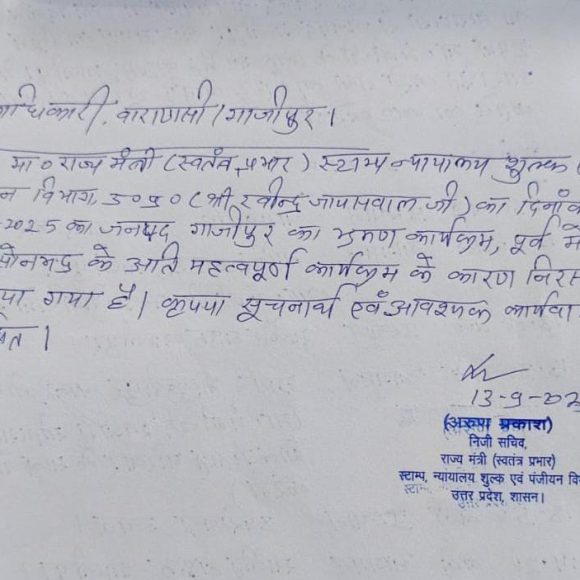 धिकारी, वाराणसी/गाजीपुर।
मा० राज्य मंत्री (स्वतंत्र प्रभार) स्टाम्प न्यायालय शुल्क
न विभाग, उ०प्र० (श्री रवीन्द्र जायसवाल जी) का दिनांक
2025 का जनपद गाजीपुर का भ्रमण कार्यक्रम, पूर्व में
सोनभद्र के अति महत्वपूर्ण कार्यक्रम के कारण निरस्
या गया है। कृपया सूचनार्थ एवं आवश्यक कार्यवा
त।
13-9-202
(अरुण प्रकाश)
निजी सचिव,
राज्य मंत्री (स्वतंत्र प्रभार)
स्टाम्प, न्यायालय शुल्क एवं पंजीयन वि
उत्तर प्रदेश, शासन।